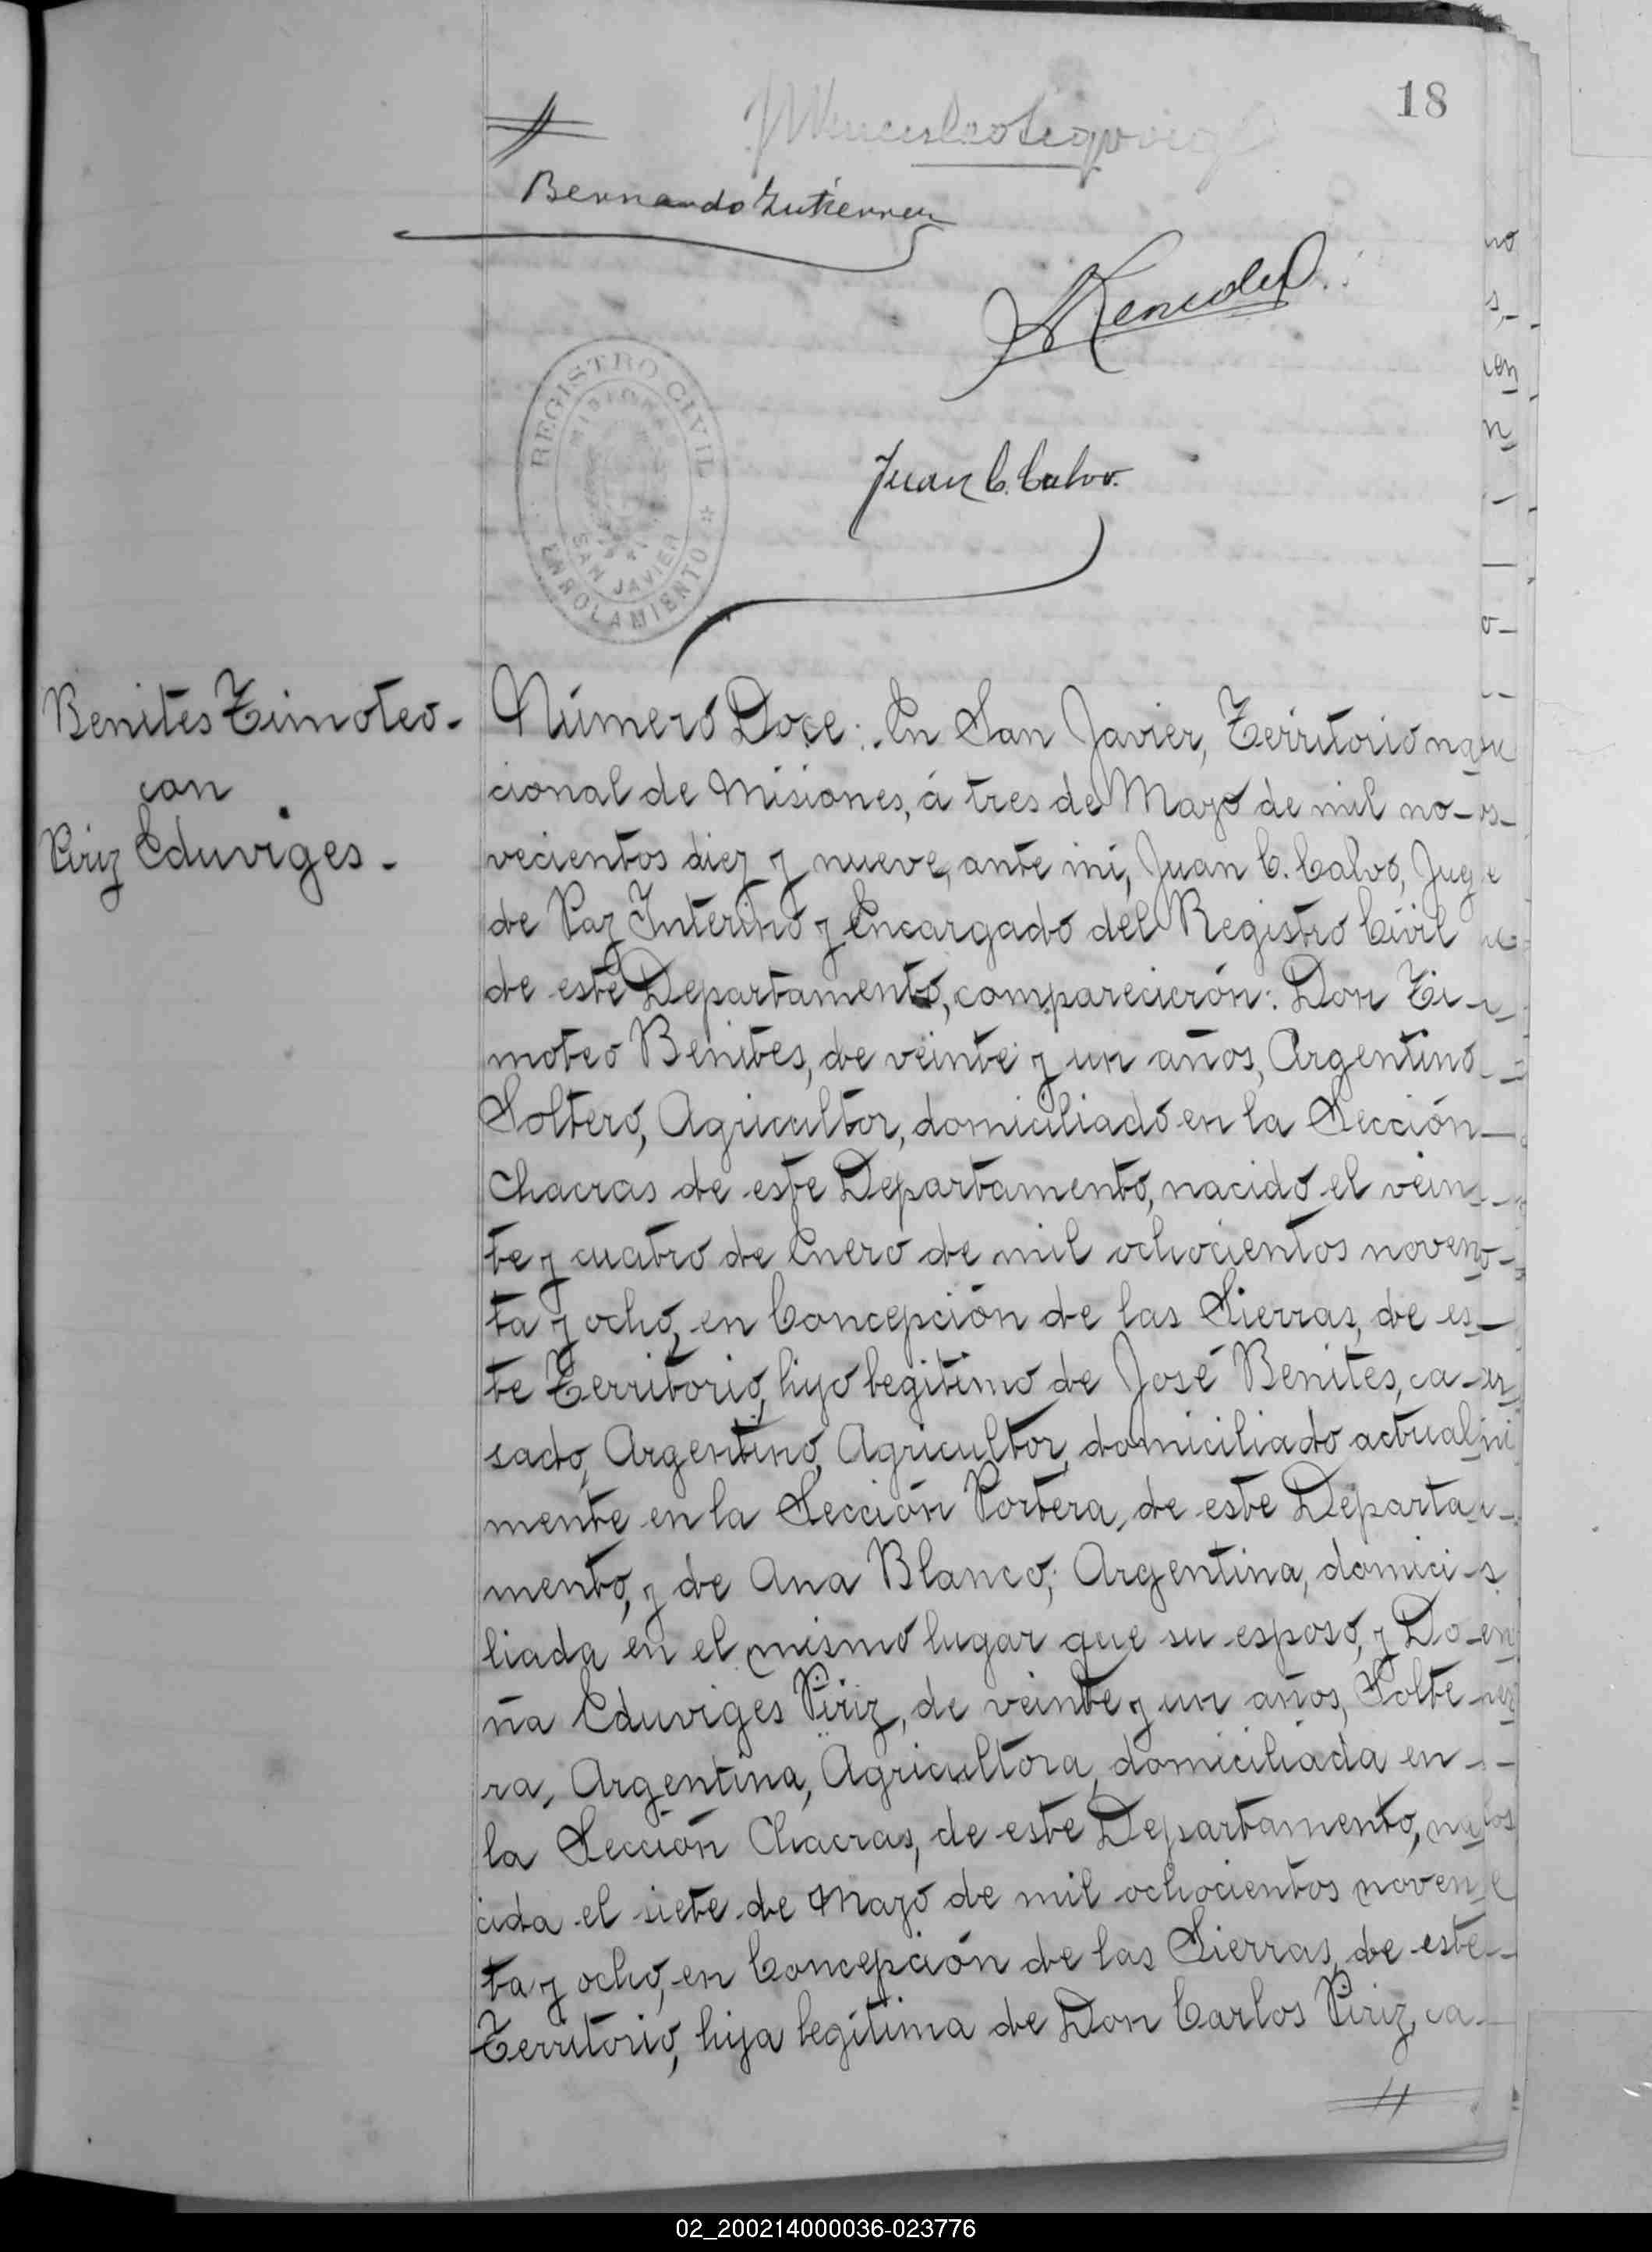 18
Bernardo Gutierrez
Juan C. Calvo.
REGISTRO CIVIL
MISIONES
SAN JAVIER
ENROLAMIENTO
Benites Timoteo-
con
Piriz Eduviges-
Número Doce: En San Javier, Territorio na
cional de Misiones, á tres de Mayo de mil no-
vecientos diez y nueve, ante mi, Juan C. Calvo, Juez
de Paz Interino y Encargado del Registro Civil
de este Departamento, comparecierón: Don Ti-
moteo Benites, de veinte y un años, Argentino
Soltero, Agricultor, domiciliado en la Sección
Chacras de este Departamento, nacido el vein
te y cuatro de Enero de mil ochocientos noven-
ta y ocho, en Concepción de las Sierras, de es-
te Territorio, hijo legitimo de José Benites, ca-
sado, Argentino, Agricultor, domiciliado actual
mente en la Sección Portera, de este Departa-
mento, y de Ana Blanco; Argentina, domici-
liada en el mismo lugar que su esposo, y Do-
ña Eduviges Piriz, de veinte y un años, Solte-
ra, Argentina, Agricultora, domiciliada en-
la Sección Chacras, de este Departamento, na
cida el siete de Mayo de mil ochocientos noven
ta y ocho, en Concepción de las Sierras, de este-
Territorio, hija legítima de Don Carlos Piriz, ca-
02_200214000036-023776